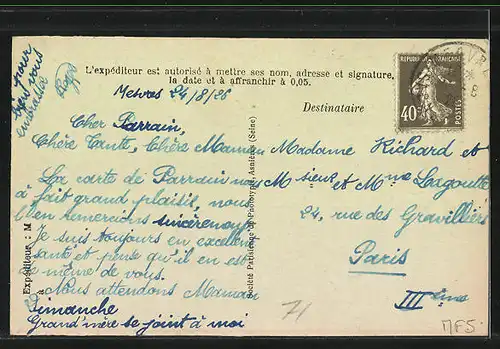 L'expéditeur est autorisé à mettre ses nom, adresse et signature,
la date et à affranchir à 0,05.
24/8/26
Cher Parrain,
Chère Tante, Chère Maman
La carte de Parrain nous
a fait grand plaisir, nous
l'en remercions sincèrement
Je suis toujours en excellente
santé et pense qu'il en est
de même de vous.
Nous attendons Maman
Dimanche
Grand'mère se joint à moi
pour
vous
embrasser
Destinataire
Madame Richard et
Mr et Mme Lagoutte
24, rue des Gravilliers
Paris
IIIème
REPUBLIQUE FRANÇAISE
40c
POSTES
Expéditeur : M
71
MFS